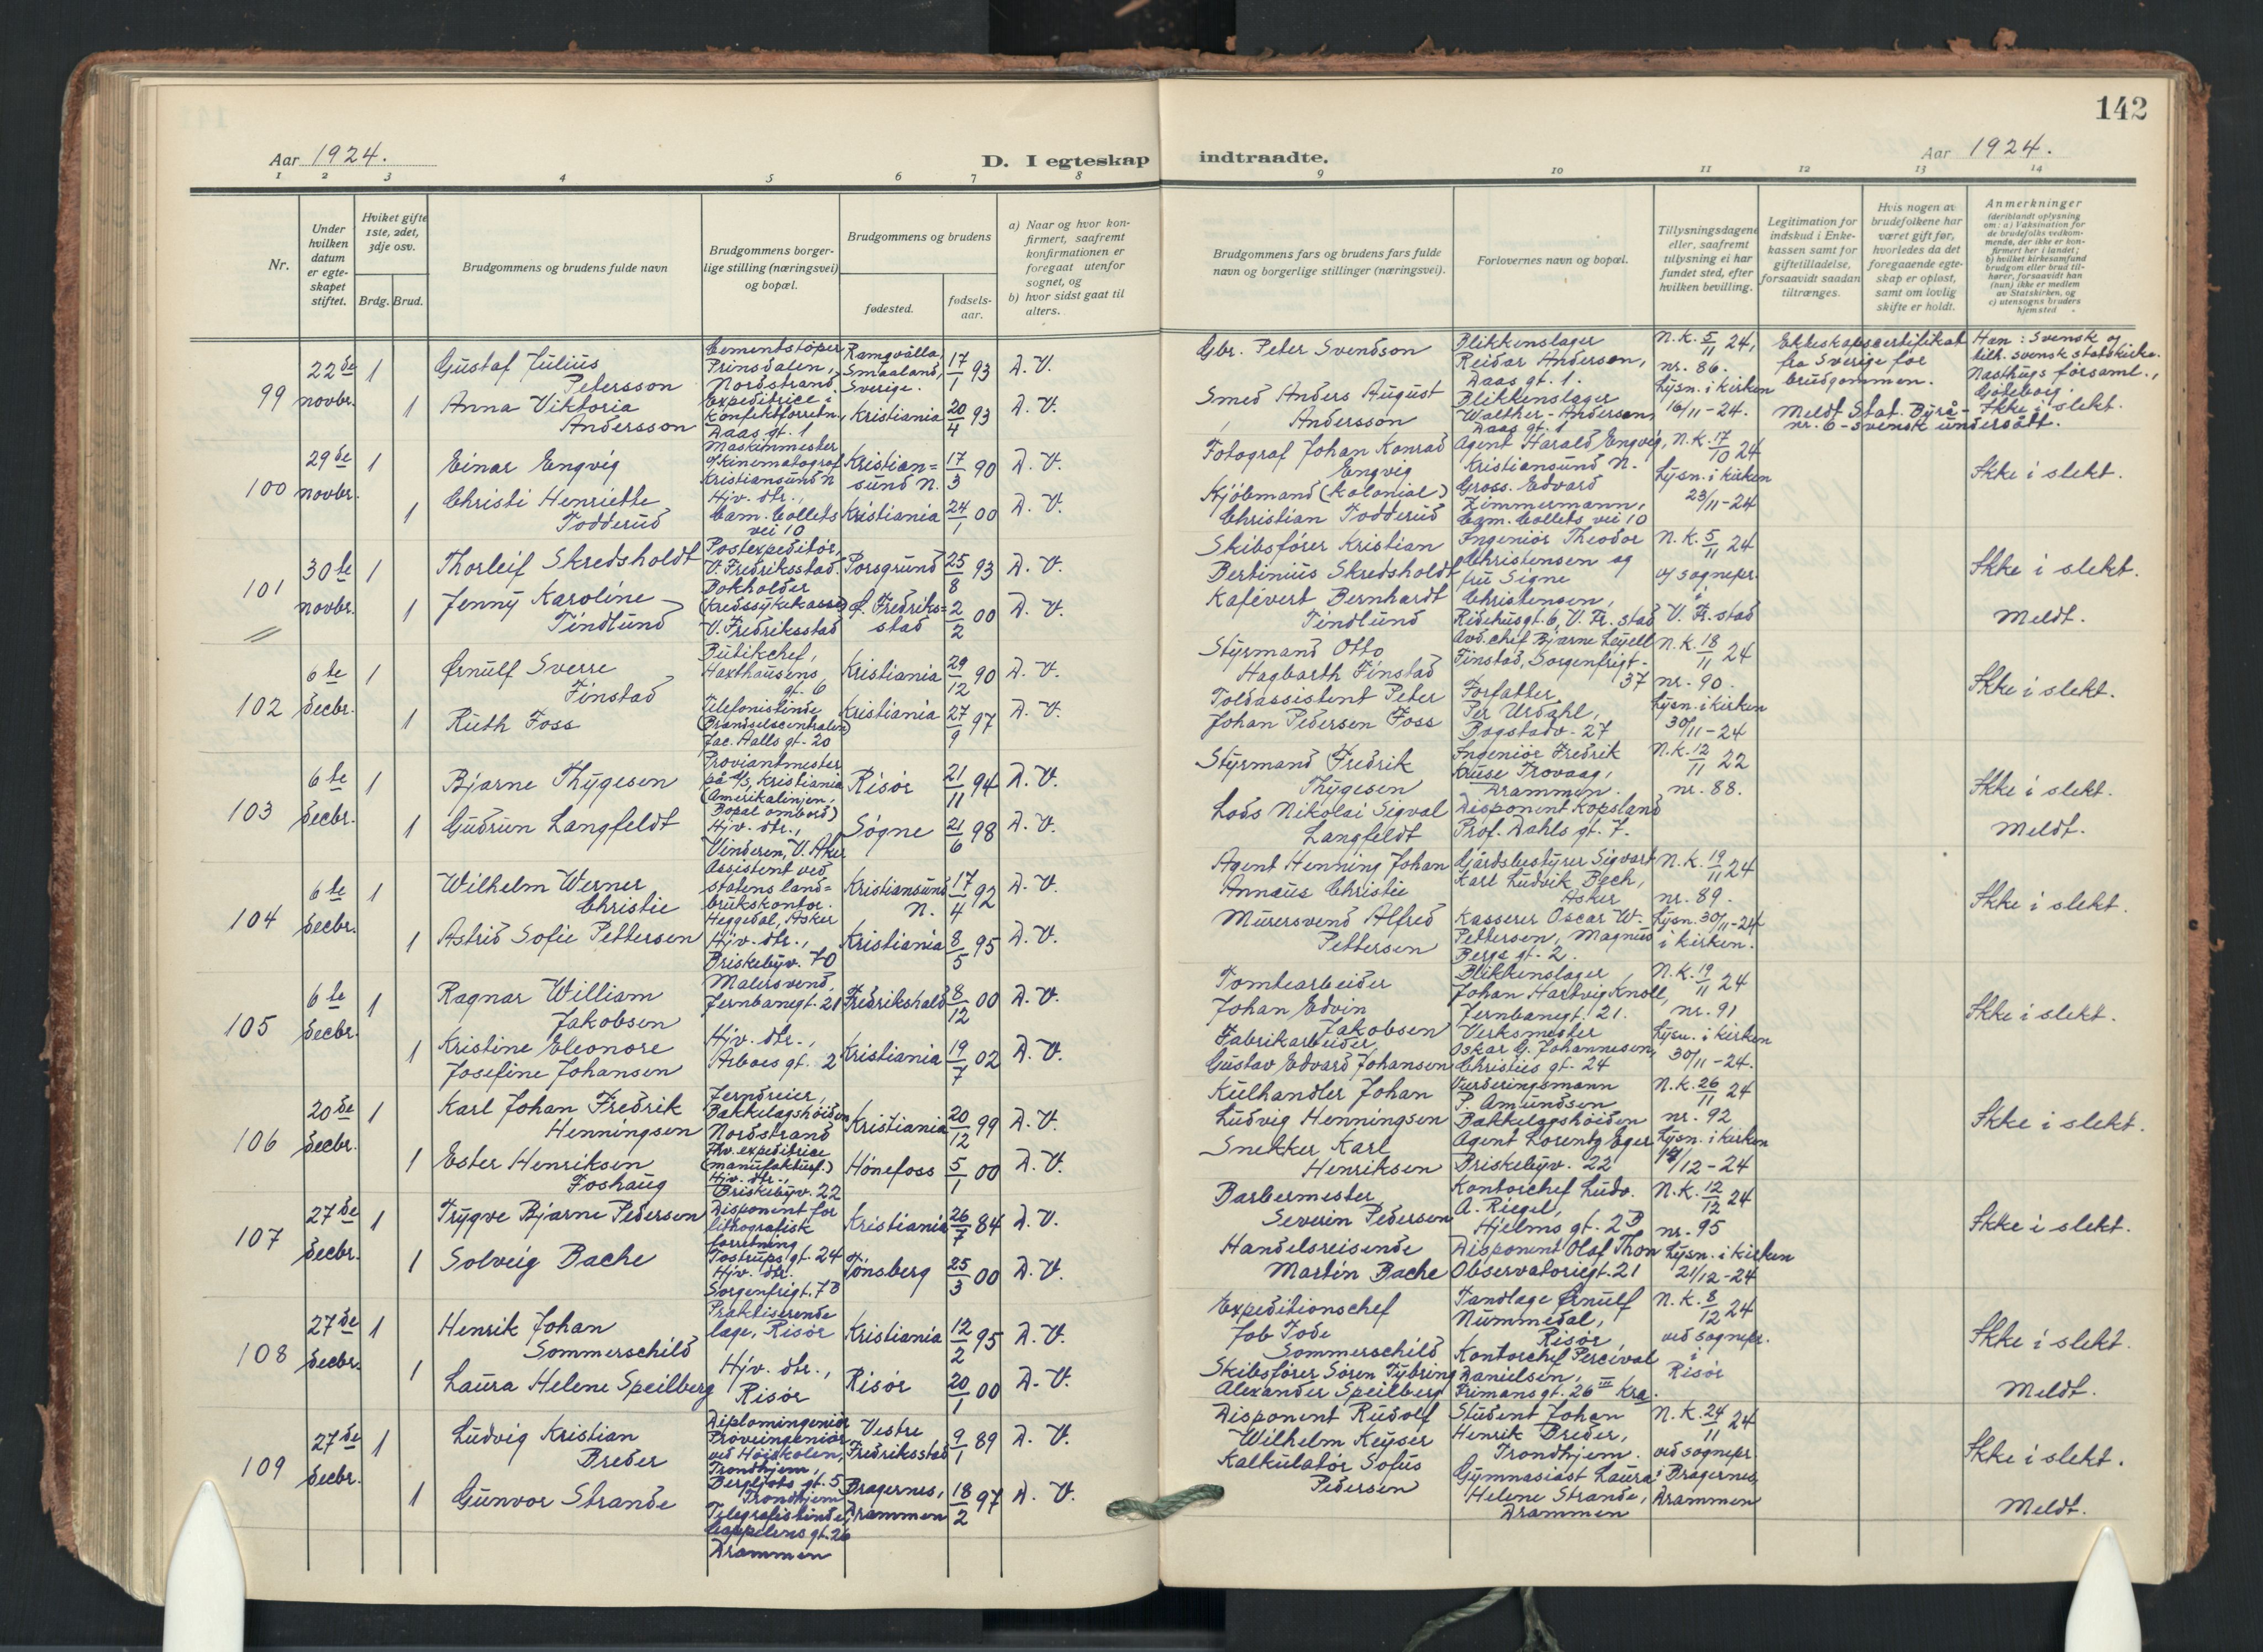 142
Aar 1924.
D. I egteskap indtraadte.
Aar 1924.
1 2 3 4 5 6 7 8 9 10 11 12 13 14
Nr.
Under hvilken datum er egteskapet stiftet.
Hvilket gifte 1ste, 2det, 3dje osv.
Brdg. Brud.
Brudgommens og brudens fulde navn
Brudgommens borgerlige stilling (næringsvei) og bopæl.
Brudgommens og brudens
fødested.
fødselsaar.
a) Naar og hvor konfirmert, saafremt konfirmationen er foregaat utenfor sognet, og
b) hvor sidst gaat til alters.
Brudgommens fars og brudens fars fulde navn og borgerlige stillinger (næringsvei).
Forlovernes navn og bopæl.
Tillysningsdagene eller, saafremt tillysning ei har fundet sted, efter hvilken bevilling.
Legitimation for indskud i Enkekassen samt for giftetilladelse, forsaavidt saadan tiltrænges.
Hvis nogen av brudefolkene har været gift før, hvorledes da det foregaaende egteskap er opløst, samt om lovlig skifte er holdt.
Anmerkninger
(deriblandt oplysning om: a) Vaksination for de brudefolks vedkommende, der ikke er konfirmert her i landet; b) hvilket kirkesamfund brudgom eller brud tilhører, forsaavidt han (hun) ikke er medlem av Statskirken, og c) utensogns bruders hjemsted.
99
22de novbr.
1
Gustaf Julius Petersson
Cementstøper Prinsdalen, Nordstrand
Ramqvilla, Smaaland, Sverige.
17/1 93
D. V.
Gbr. Peter Svendson
Blikkenslager Reidar Andersen, Daas gt. 1.
N. k. 5/11 24, nr. 86. Lysn. i kirken 16/11-24.
Ekteskapscertifikat fra Sverige for brudgommen.
Meldt Stat. Byrå - nr. 6 - svensk undersått.
Han: Svensk og tilh. svensk statskirke. Masthugs församl., Göteborg.
Ikke i slekt.
1
Anna Viktoria Andersson
Expeditrice i konfektforretn., Daas gt. 1
Kristiania
20/4 93
D. V.
Smed Anders August Andersson
Blikkenslager Walther-Andersen, Daas gt. 1
100
29de novbr.
1
Einar Engvig
Maskinmester v/kinematograf Kristiansund N
Kristiansund N.
17/3 90
D. V.
Fotograf Johan Konrad Engvig
Agent Harald Engvig, Kristiansund N.
N. k. 17/10 24
Lysn. i kirken 23/11-24
Ikke i slekt.
1
Christi Henriette Todderud
Hjv. dtr., Cam. Collets vei 10
Kristiania
24/1 00
D. V.
Kjöbmand (kolonial) Christian Todderud
Gross. Edvard Zimmermann, Cam. Collets vei 10
101
30te novbr.
1
Thorleif Skredsholdt
Postexpeditör, V. Fredriksstad.
Porsgrund
25/8 93
D. V.
Skibsförer Kristian Bertinius Skredsholdt
Ingeniör Theodor Christensen og fru Signe Christensen, Ridehusgt. 6, V. Fr. stad
N. k. 5/11 24
v/ sognepr. i V. Fr. stad
Ikke i slekt.
Meldt.
1
Jenny Karoline Tindlund
Bokholder (kredssykekasse) V. Fredriksstad
Gl. Fredriksstad
2/2 00
D. V.
Kafévert Bernhardt Tindlund
102
6te decbr.
1
Ørnulf Sverre Finstad
Butikchef, Haxthausens gt. 6
Kristiania
29/12 90
D. V.
Styrmand Otto Hagbarth Finstad
Avd. chef Bjarne Leyell Finstad, Sorgenfrigt. 37
N. k. 18/11 24
nr. 90.
Lysn. i kirken 30/11-24
Ikke i slekt.
1
Ruth Foss
Telefonistinde (Brændselscentralen) Jac. Aalls gt. 20
Kristiania
27/9 97
D. V.
Toldassistent Peter Johan Pedersen Foss
Forfatter Per Urdahl, Bogstadv. 27
103
6te decbr.
1
Bjarne Thygesen
Proviantmester på d/s, Kristiania (Amerikalinjen, Bopæl ombord)
Risör
21/11 94
D. V.
Styrmand Fredrik Thygesen
Ingeniör Fredrik Kruse Trovaag, Drammen.
N. k. 12/11 22
nr. 88.
Ikke i slekt.
Meldt.
1
Gudrun Langfeldt
Hjv. dtr., Vinderen, V. Aker
Sögne
21/6 98
D. V.
Lods Nikolai Sigval Langfeldt
Disponent Kopsland Prof. Dahls gt. 7.
104
6te decbr.
1
Wilhelm Werner Christie
Assistent ved statens landbrukskontor. Heggedal, Asker
Kristiansund N.
17/4 92
D. V.
Agent Henning Johan Annæus Christie
Gårdsbestyrer Sigvart Karl Ludvik Bech, Asker
N. k. 19/11 24
nr. 89.
Lysn. 30/11-24 i kirken.
Ikke i slekt.
1
Astrid Sofie Pettersen
Hjv. dtr., Briskebyv. 70
Kristiania
8/5 95
D. V.
Murersvend Alfred Pettersen
Kasserer Oscar W. Pettersen, Magnus Bergs gt. 2.
105
6te decbr.
1
Ragnar William Jakobsen
Malersvend, Jernbanegt. 21
Fredrikshald
8/12 00
D. V.
Tomtearbeider Johan Edvin Jakobsen
Blikkenslager Johan Hartvig Knoll, Jernbanegt. 21.
N. k. 19/11 24
nr. 91
Lysn. i kirken 30/11-24.
Ikke i slekt.
1
Kristine Eleonore Josefine Johansen
Hjv. dtr., Arboes gt. 2
Kristiania
19/7 02
D. V.
Fabrikarbeider, Gustav Edvard Johansen
Verksmester Oskar G. Johannesen, Christies gt. 24
106
20de decbr.
1
Karl Johan Fredrik Henningsen
Jerndreier, Bakkelagshöiden Nordstrand
Kristiania
20/12 99
D. V.
Kulhandler Johan Ludvig Henningsen
Vurderingsmann P. Amundsen Bakkelagshöiden
N. k. 26/11 24
nr. 92
Lysn. i kirken 14/12-24
Ikke i slekt.
1
Ester Henriksen Foshaug
Fhv. expeditrice (manufakturf.) Hjv. dtr., Briskebyv. 22
Hönefoss
5/1 00
D. V.
Snekker Karl Henriksen
Agent Lorentz Eger Briskebyv. 22
107
27de decbr.
1
Trygve Bjarne Pedersen
Disponent for lithografisk forretning Tostrups gt. 24
Kristiania
26/7 84
D. V.
Barbermester Severin Pedersen
Kontorchef Ludv. A. Riegel, Hjelms gt. 2B
N. k. 12/12 24
nr. 95
Lysn. i kirken 21/12-24
Ikke i slekt.
1
Solveig Bache
Hjv. dtr. Sorgenfrigt. 7B
Tönsberg
25/3 00
D. V.
Handelsreisende Martin Bache
Disponent Olaf Thon Observatoriegt. 21
108
27de decbr.
1
Henrik Johan Sommerschild
Praktiserende læge, Risör
Kristiania
12/2 95
D. V.
Expeditionschef Job Tode Sommerschild
Tandlæge Ørnulf Nummedal, Risör
N. k. 8/12 24
ved sognepr. i Risör
Ikke i slekt.
Meldt.
1
Laura Helene Speilberg
Hjv. dtr., Risör
Risör
20/1 00
D. V.
Skibsförer Sören Tybring Alexander Speilberg
Kontorchef Percival Danielsen, Frimans gt. 26 III Kra.
109
27de decbr.
1
Ludvig Kristian Breder
Diplomingeniör Pröveingeniör ved Höiskolen, Trondhjem, Bergljots gt. 5 Trondhjem
Vestre Fredriksstad
9/1 89
D. V.
Disponent Rudolf Wilhelm Keyser
Student Johan Henrik Breder, Trondhjem.
N. k. 24/11 24
ved sognepr. i Bragernes, Drammen
Ikke i slekt.
Meldt.
1
Gunvor Strande
Telegrafistinde, Cappelens gt. 26 Drammen
Bragernes, Drammen
18/2 97
D. V.
Kalkulatör Sofus Pedersen
Gymnasiast Laura Helene Strande, Drammen